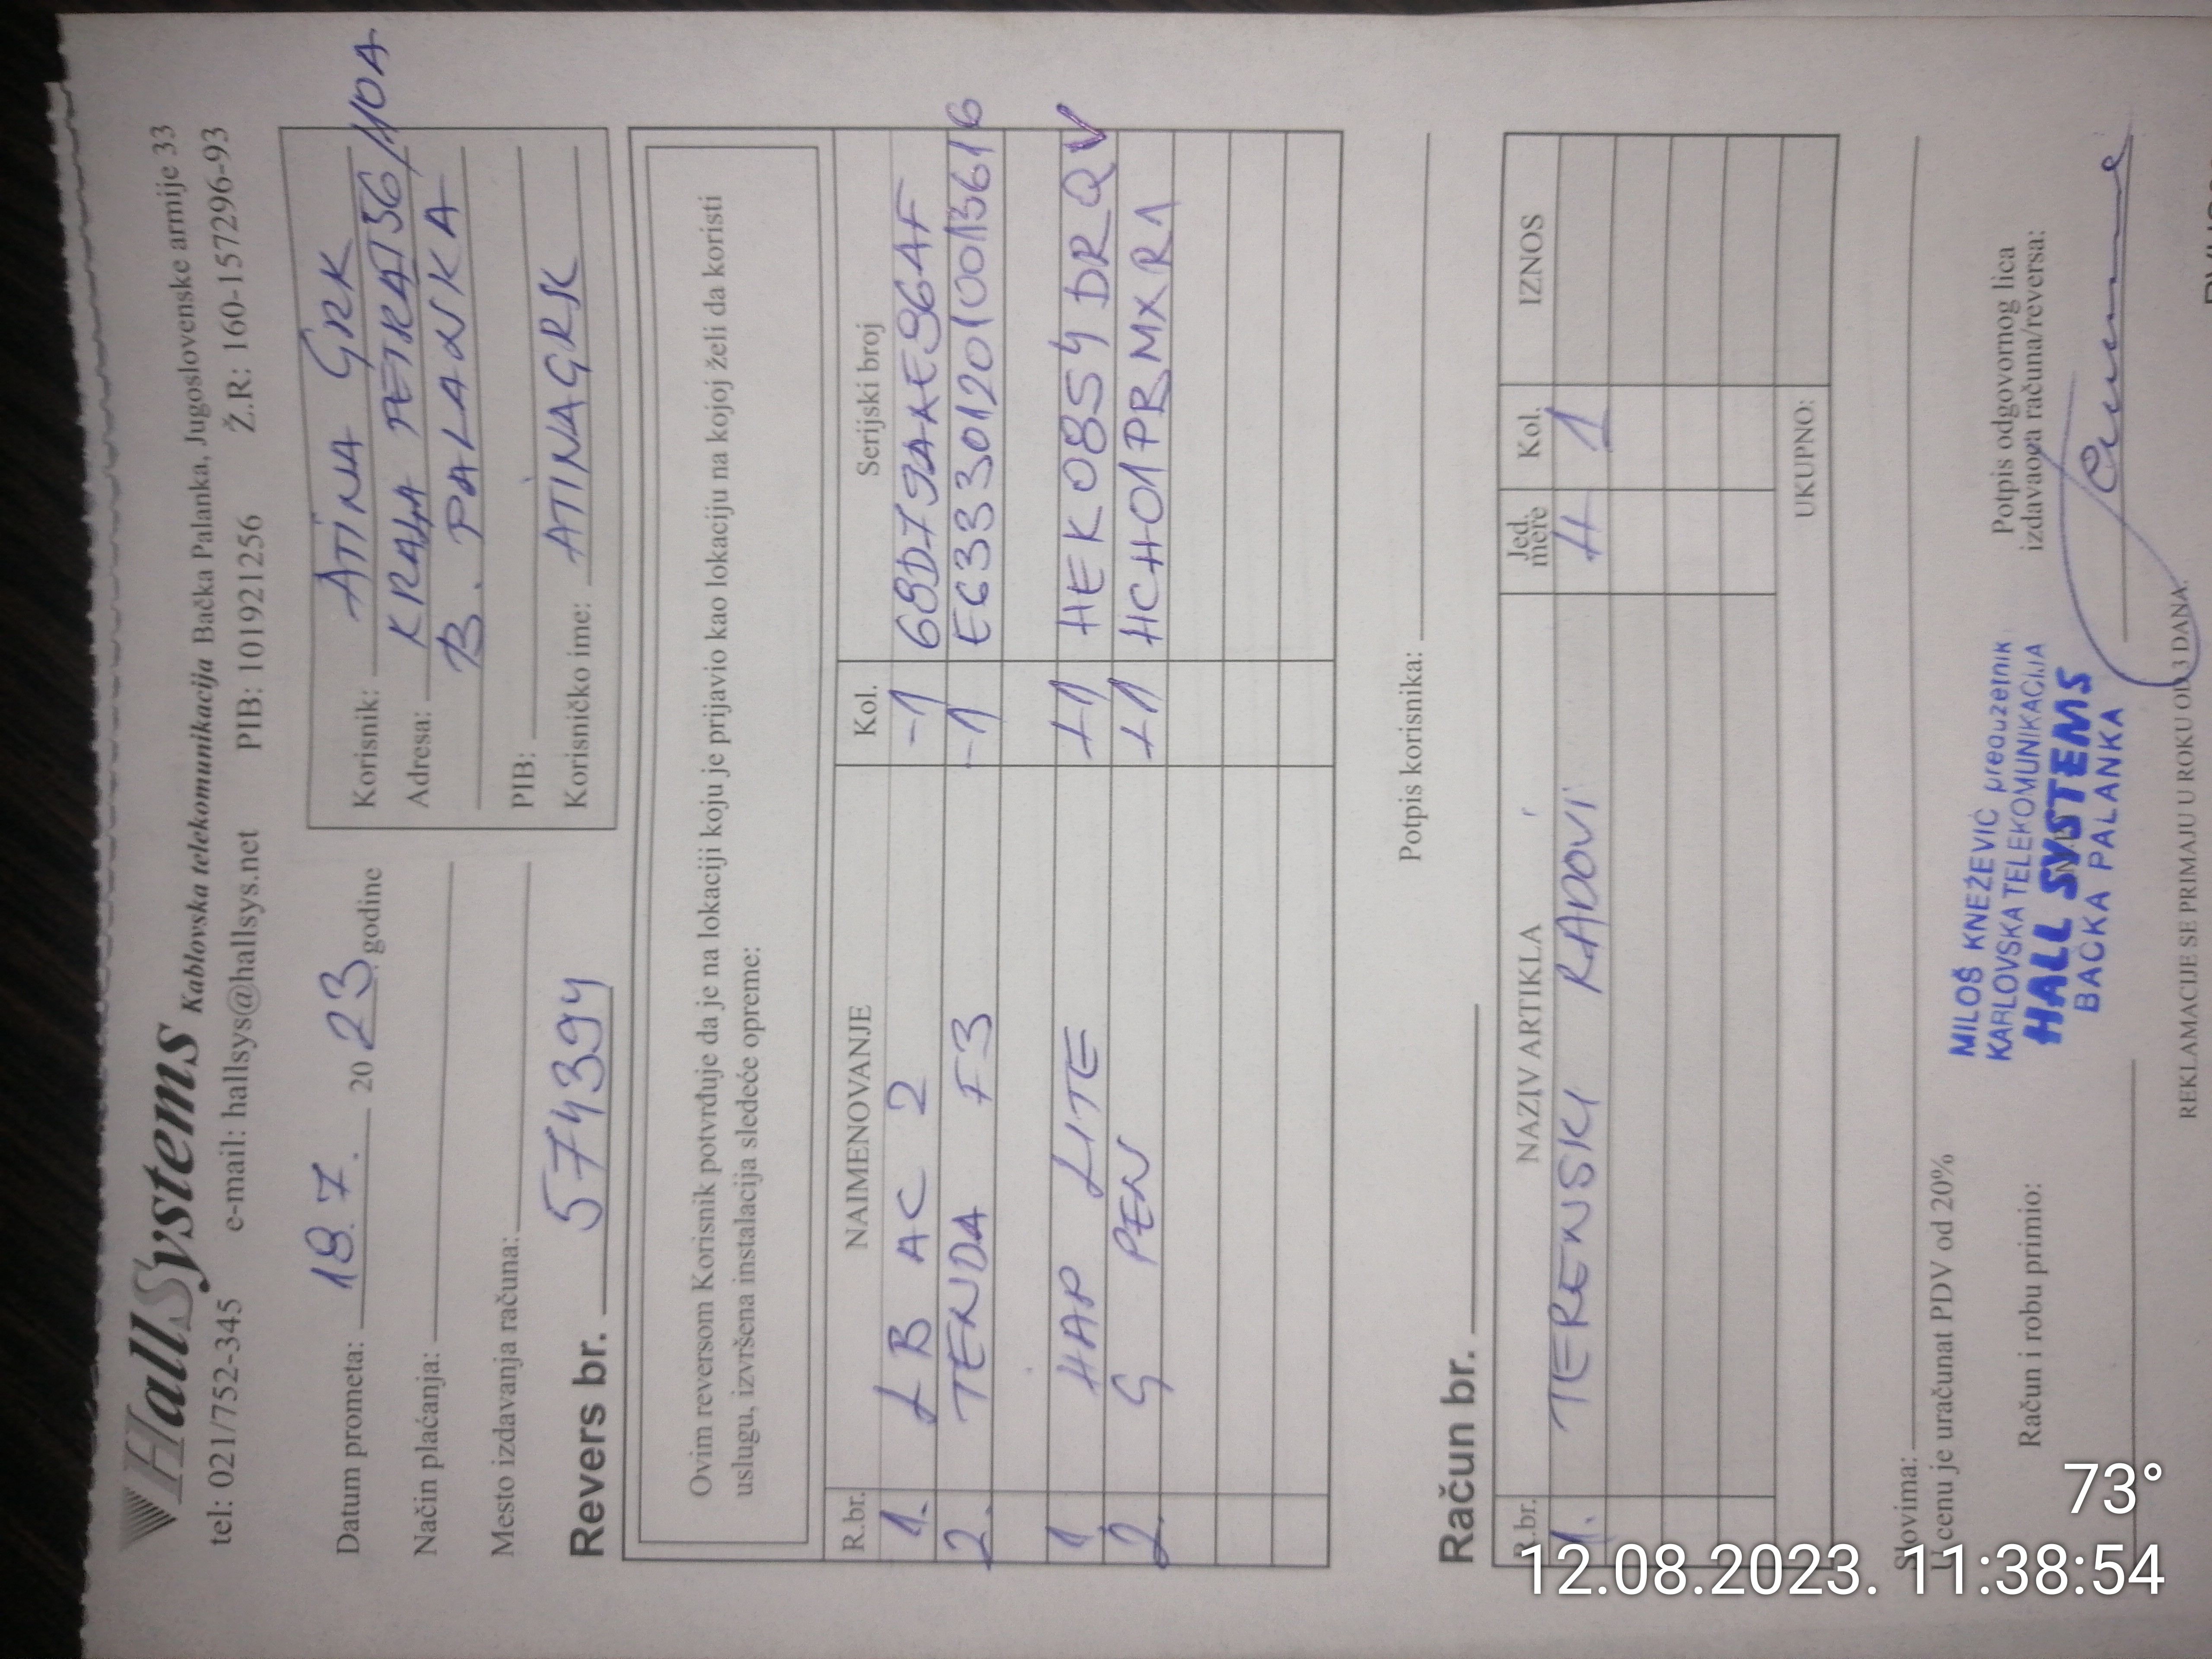 HallSystems Kablovska telekomunikacija Bačka Palanka, Jugoslovenske armije 33
tel: 021/752-345 e-mail: hallsys@hallsys.net PIB: 101921256 Ž.R: 160-157296-93
Datum prometa: 18.7. 2023. godine
Način plaćanja:
Mesto izdavanja računa:
Revers br. 574394
Korisnik: ATINA GRK
Adresa: KRALJA PETRA I 56/10A
B. PALANKA
PIB:
Korisničko ime: ATINAGRK
Ovim reversom Korisnik potvrđuje da je na lokaciji koju je prijavio kao lokaciju na kojoj želi da koristi
uslugu, izvršena instalacija sledeće opreme:
R.br. NAIMENOVANJE Kol. Serijski broj
1. LB AC 2 -1
2. TENDA F3 -1 E6333012010013616
1 HAP LITE +1 HEK0854DRQV
2. 5 PEN +1 HCH01PRMXR1
Potpis korisnika:
Račun br.
R.br. NAZIV ARTIKLA Jed. mere Kol. IZNOS
1. TERENSKI RADOVI H 1
UKUPNO:
Slovima:
U cenu je uračunat PDV od 20%
Račun i robu primio:
MILOŠ KNEŽEVIĆ preduzetnik
KARLOVSKA TELEKOMUNIKACIJA
HALL SYSTEMS
BAČKA PALANKA
Potpis odgovornog lica
izdavaoca računa/reversa:
REKLAMACIJE SE PRIMAJU U ROKU OD 3 DANA.
73°
12.08.2023. 11:38:54